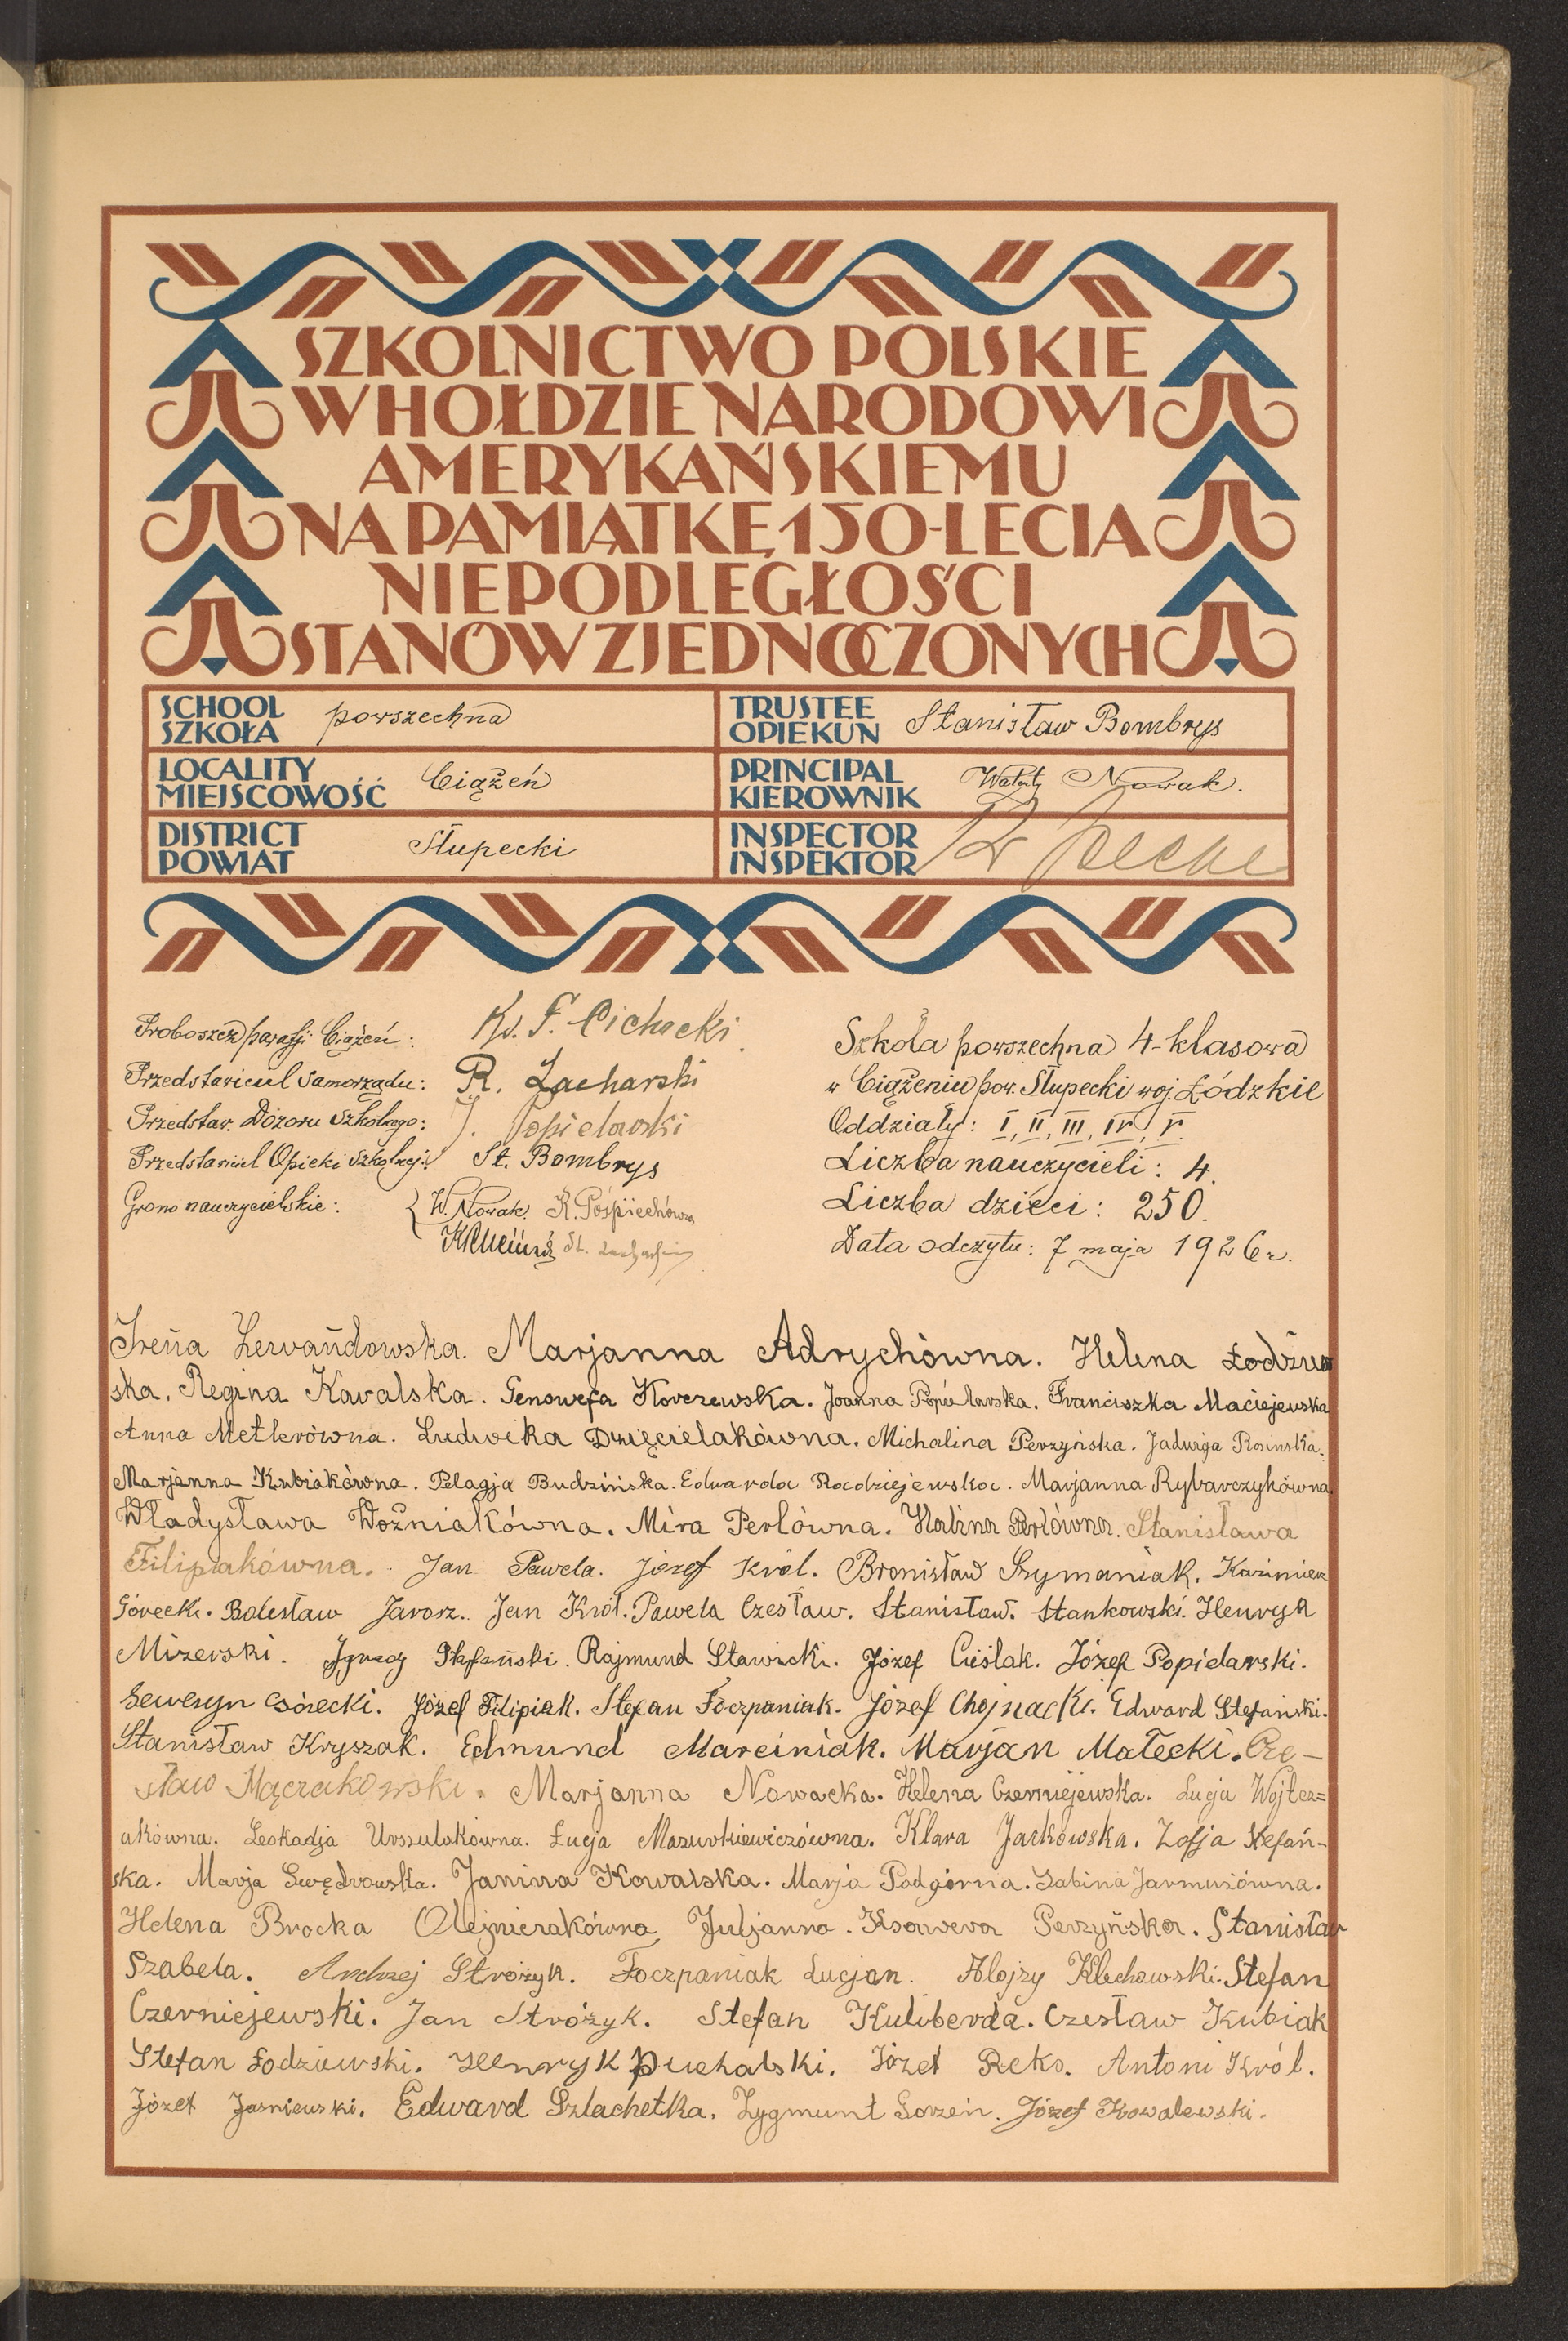 SZKOLNICTWO POLSKIE
W HOŁDZIE NARODOWI
AMERYKAŃSKIEMU
NA PAMIĄTKĘ 150-LECIA
NIEPODLEGŁOŚCI
STANÓW ZJEDNOCZONYCH
SCHOOL
SZKOŁA
powszechna
TRUSTEE
OPIEKUN
Stanisław Bombrys
LOCALITY
MIEJSCOWOŚĆ
Ciążeń
PRINCIPAL
KIEROWNIK
Nowak.
DISTRICT
POWIAT
Słupecki
INSPECTOR
INSPEKTOR
Proboszcz parafji Ciążeń: Ks. F. Cichocki
Przedstawiciel Samorządu: R. Zacharski
Przedstaw. Dozoru Szkolnego: J. Popielawski
Przedstawiciel Opieki Szkolnej: St. Bombrys
Grono nauczycielskie: W. Nowak. K. Pośpiechówna
St.
Szkoła powszechna 4-klasowa
w Ciążeniu pow. Słupecki woj. Łódzkie
Oddziały: I, II, III, IV, V.
Liczba nauczycieli: 4.
Liczba dzieci: 250.
Data odczytu: 7 maja 1926 r.
Irena Lewandowska. Marjanna Adrychówna. Helena Łodziew
ska. Regina Kavalska. Genowefa Korczewska. Joanna Popielarska. Franciszka Maciejewska
Anna Metlerówna. Ludwika Dzięcielakówna. Michalina Perzyńska. Jadwiga Rosińska.
Marjanna Kubiakówna. Pelagja Budzińska. Edwarda Radziejewska. Marjanna Rybarczykówna.
Władysława Woźniakówna. Mira Perlówna. Halina Perlówna. Stanisława
Filipiakówna. Jan Pawela. Józef Król. Bronisław Szymaniak. Kazimierz
Górecki. Bolesław Jaworz. Jan Król. Pawela Czesław. Stanisław. Stankowski. Henryk
Mizerski. Ignacy Stefański. Rajmund Stawicki. Józef Cieślak. Józef Popielarski.
Seweryn Górecki. Józef Filipiak. Stefan Foczpaniak. Józef Chojnacki. Edward Stefański.
Stanisław Kryszak. Edmund Marciniak. Marjan Małecki. Cze-
sław Mączakowski. Marjanna Nowacka. Helena Czerniejewska. Łucja Wojtcz=
akówna. Leokadja Urszulakówna. Łucja Mazurkiewiczówna. Klara Jackowska. Zofja Stefań-
ska. Marja Swędrowska. Janina Kowalska. Marja Podgórna. Sabina Jarmużówna.
Helena Brocka Olejniczakówna Juljanna. Ksawera Perzyńska. Stanisław
Szabela. Andrzej Stróżyk. Foczpaniak Lucjan. Alojzy Klechowski. Stefan
Czerniejewski. Jan Stróżyk. Stefan Kuliberda. Czesław Kubiak
Stefan Łodziewski. Henryk Puchalski. Józef Reks. Antoni Król.
Józef Jaśniewski. Edward Szlachetka. Zygmunt Gorzeń. Józef Kowalewski.